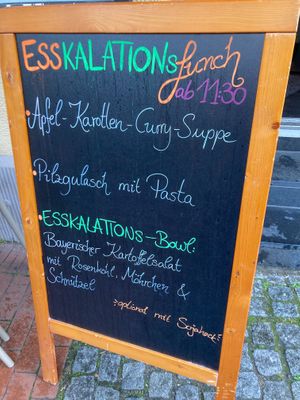 ESSKALATIONs Lunch
ab 11:30
Apfel-Karotten-Curry-Suppe
Pilzgulasch mit Pasta
ESSKALATIONS-Bowl:
Bayerischer Kartoffelsalat
mit Rosenkohl, Möhrchen &
Schnitzel
optional mit Sojahack